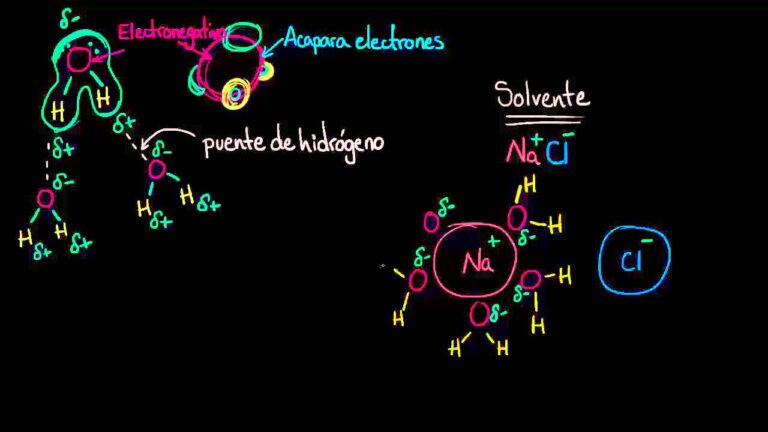 δ-
Electronegativo
Acapara electrones
O
H H
δ+
δ+
puente de hidrógeno
δ- δ-
O O
H H H H
δ+ δ+ δ+ δ+
Solvente
Na+ Cl-
H
O δ- O H
δ-
δ- Na+ Cl-
O δ- O H
H O δ- H
H H